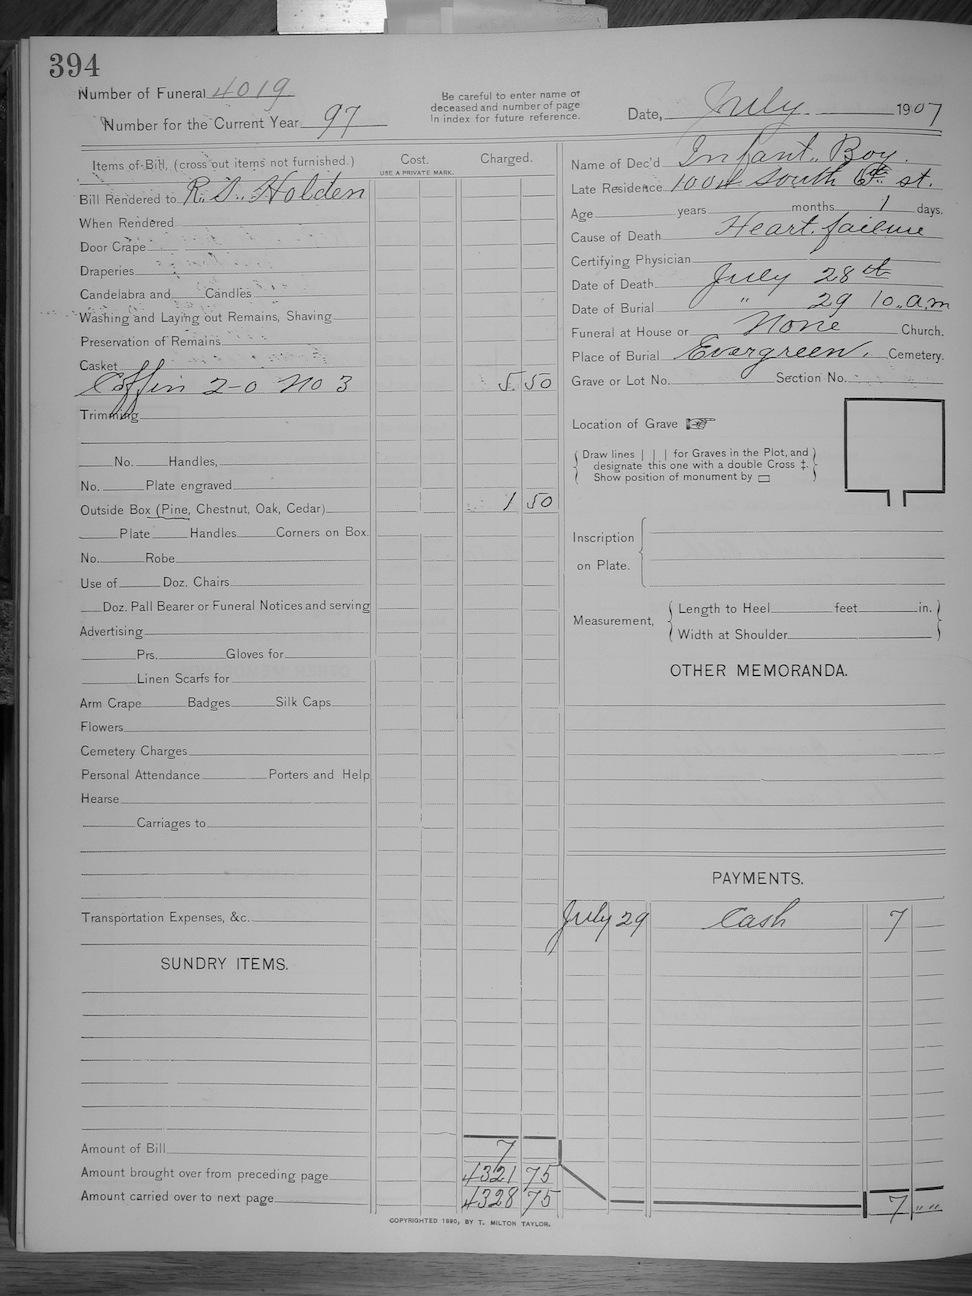 394
Number of Funeral 4019
Number for the Current Year 97
Be careful to enter name of
deceased and number of page
in index for future reference.
Date, July 1907
Items of Bill, (cross out items not furnished.)
Cost.
USE A PRIVATE MARK.
Charged.
Bill Rendered to R. T. Holden
When Rendered
Door Crape
Draperies
Candelabra and Candles
Washing and Laying out Remains, Shaving
Preservation of Remains
Casket
Coffin 2-0 No 3 5 50
Trimming
No. Handles,
No. Plate engraved
Outside Box (Pine, Chestnut, Oak, Cedar) 1 50
Plate Handles Corners on Box.
No. Robe
Use of Doz. Chairs
Doz. Pall Bearer or Funeral Notices and serving
Advertising
Prs. Gloves for
Linen Scarfs for
Arm Crape Badges Silk Caps
Flowers
Cemetery Charges
Personal Attendance Porters and Help
Hearse
Carriages to
Transportation Expenses, &c.
SUNDRY ITEMS.
Amount of Bill 7
Amount brought over from preceding page 4321 75
Amount carried over to next page 4328 75
Name of Dec'd Infant Boy.
Late Residence 1004 South 6th st.
Age years months 1 days.
Cause of Death Heart failure
Certifying Physician
Date of Death July 28th
Date of Burial " 29 10 a.m
Funeral at House or None Church.
Place of Burial Evergreen. Cemetery.
Grave or Lot No. Section No.
Location of Grave
Draw lines | | | for Graves in the Plot, and
designate this one with a double Cross ‡.
Show position of monument by ▭
Inscription
on Plate.
Measurement,
Length to Heel feet in.
Width at Shoulder
OTHER MEMORANDA.
PAYMENTS.
July 29 Cash 7
7 " "
COPYRIGHTED 1890, BY T. MILTON TAYLOR.